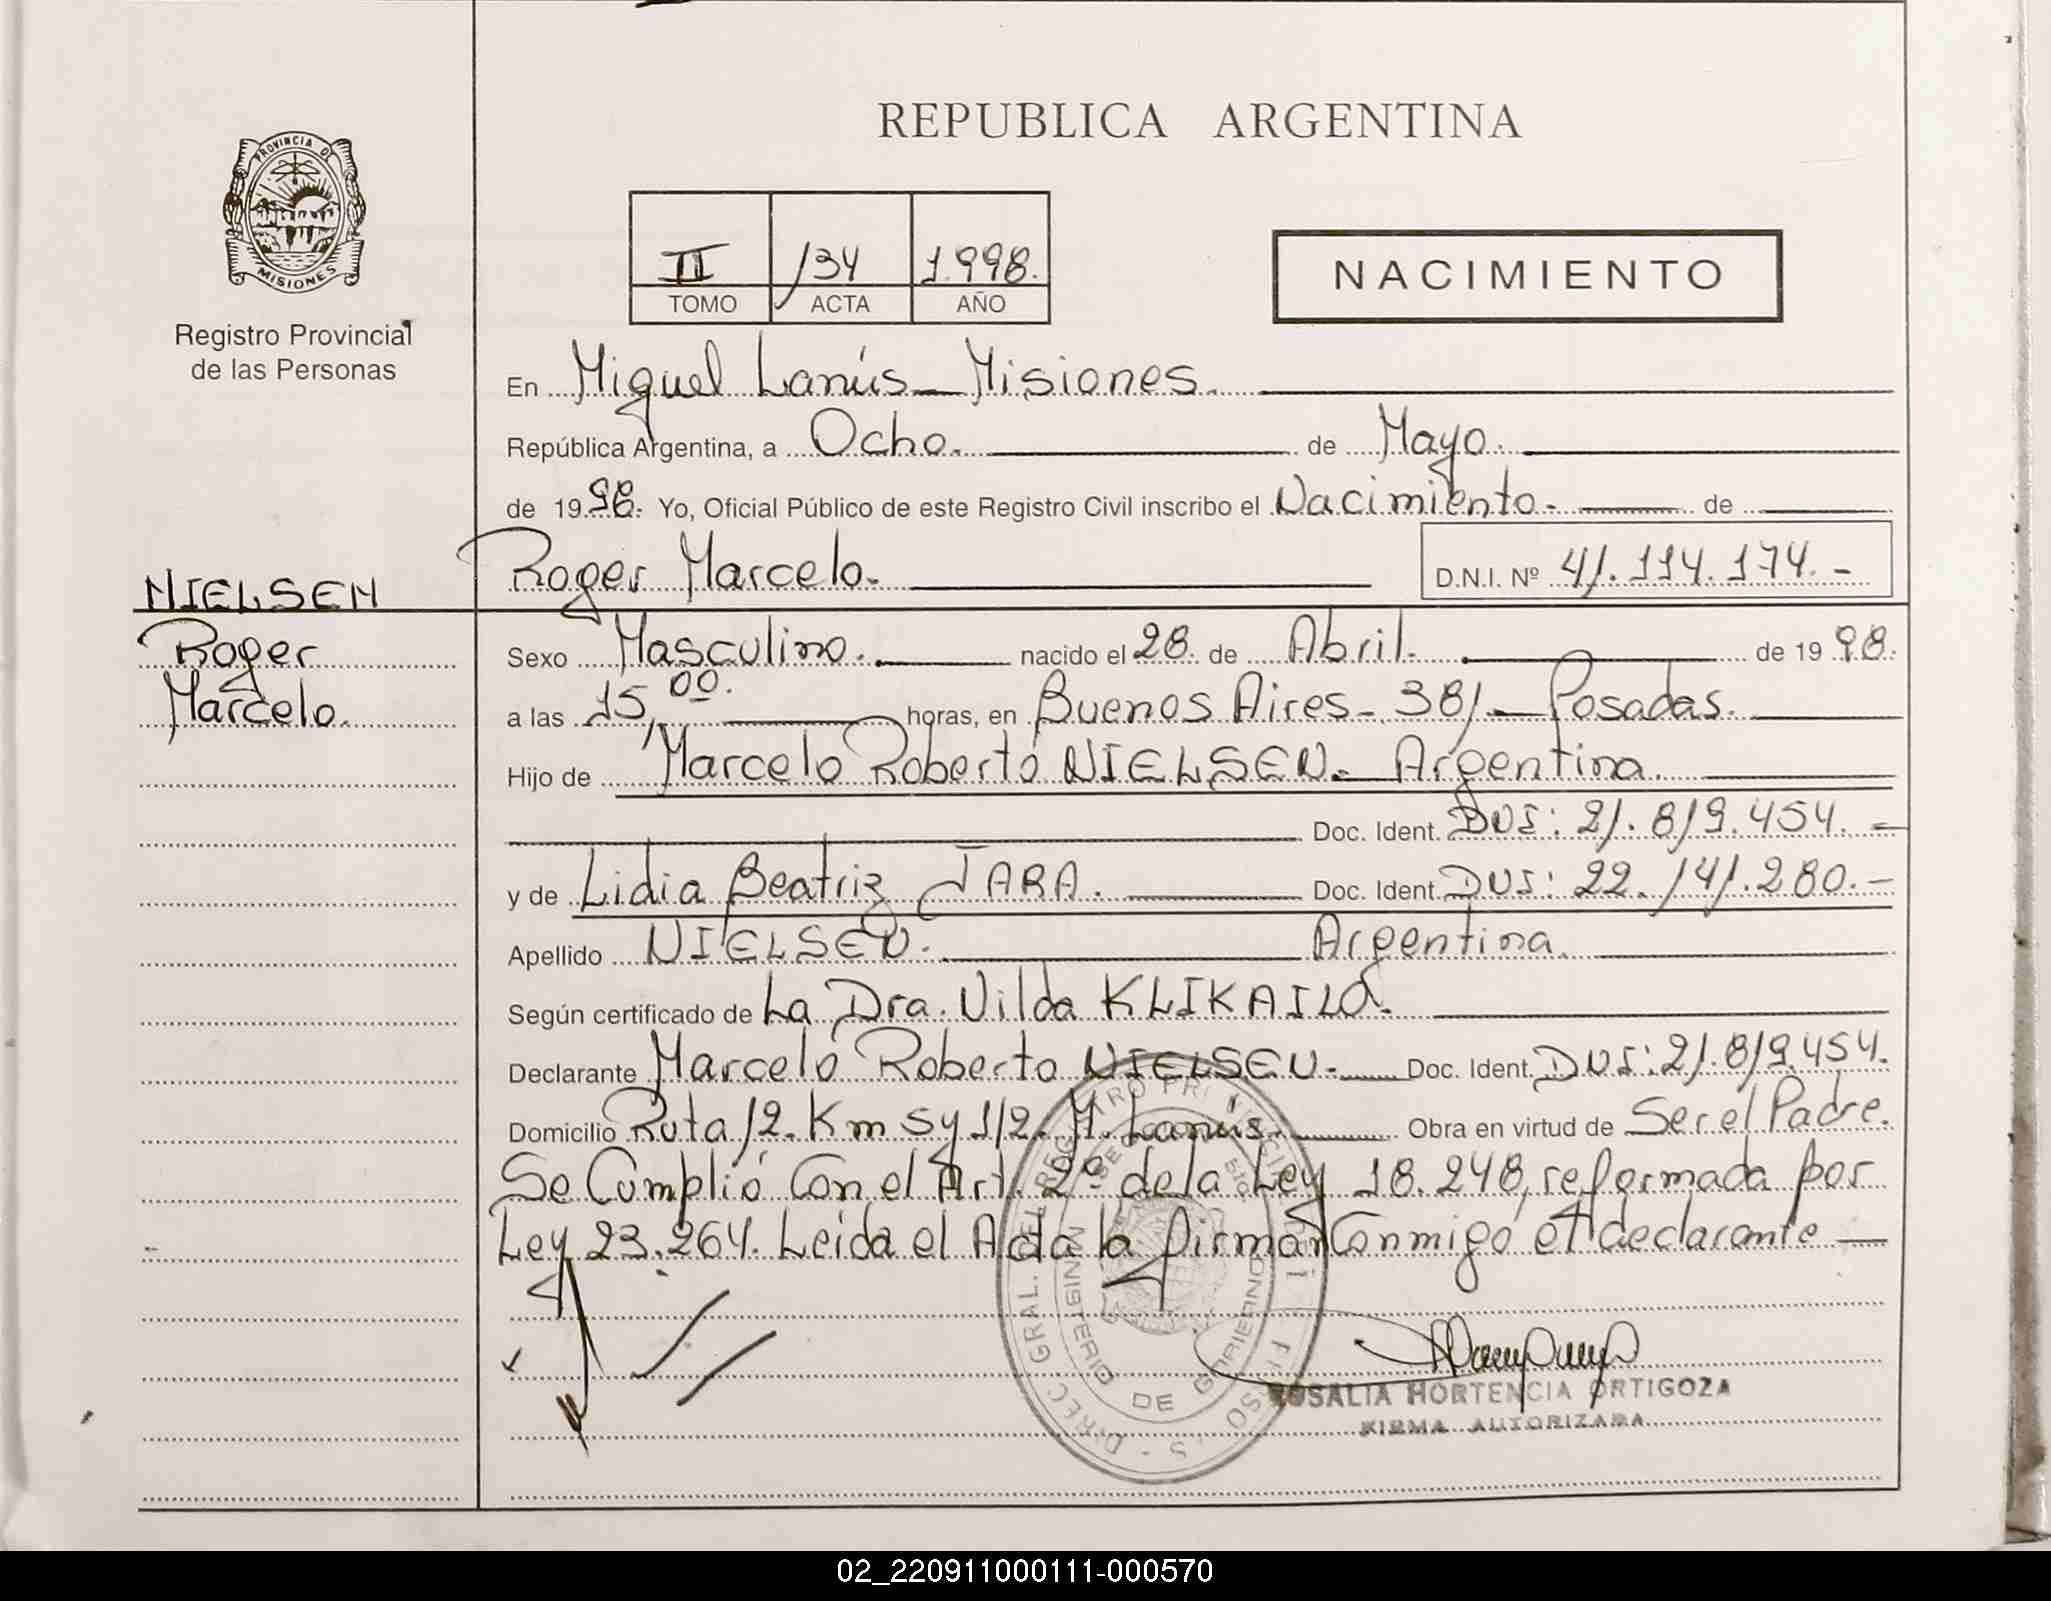 REPUBLICA ARGENTINA
PROVINCIA DE
MISIONES
Registro Provincial
de las Personas
II 134 1.998.
TOMO ACTA AÑO
NACIMIENTO
En Miguel Lanús - Misiones.
República Argentina, a Ocho. de Mayo.
de 1998. Yo, Oficial Público de este Registro Civil inscribo el Nacimiento. de
Roger Marcelo. D.N.I. Nº 41.114.174.-
NIELSEN
Roger
Marcelo.
Sexo Masculino. nacido el 28. de Abril. de 1998.
a las 15,00. horas, en Buenos Aires - 381 - Posadas.
Hijo de Marcelo Roberto NIELSEN. Argentina.
Doc. Ident. DNI: 21.819.454.-
y de Lidia Beatriz JARA. Doc. Ident. DNI: 22.141.280.-
Apellido NIELSEN. Argentina.
Según certificado de La Dra. Nilda
Declarante Marcelo Roberto NIELSEN. Doc. Ident. DNI: 21.819.454.
Domicilio Ruta 12. Km 5 y 1/2. M. Lanús. Obra en virtud de Ser el Padre.
Se Cumplió Con el Art. 2º de la Ley 18.248, reformada por
Ley 23.264. Leida el Acta la firman Conmigo el declarante
MINISTERIO DE GOBIERNO
ROSALIA HORTENCIA ORTIGOZA
FIRMA AUTORIZADA
02_220911000111-000570